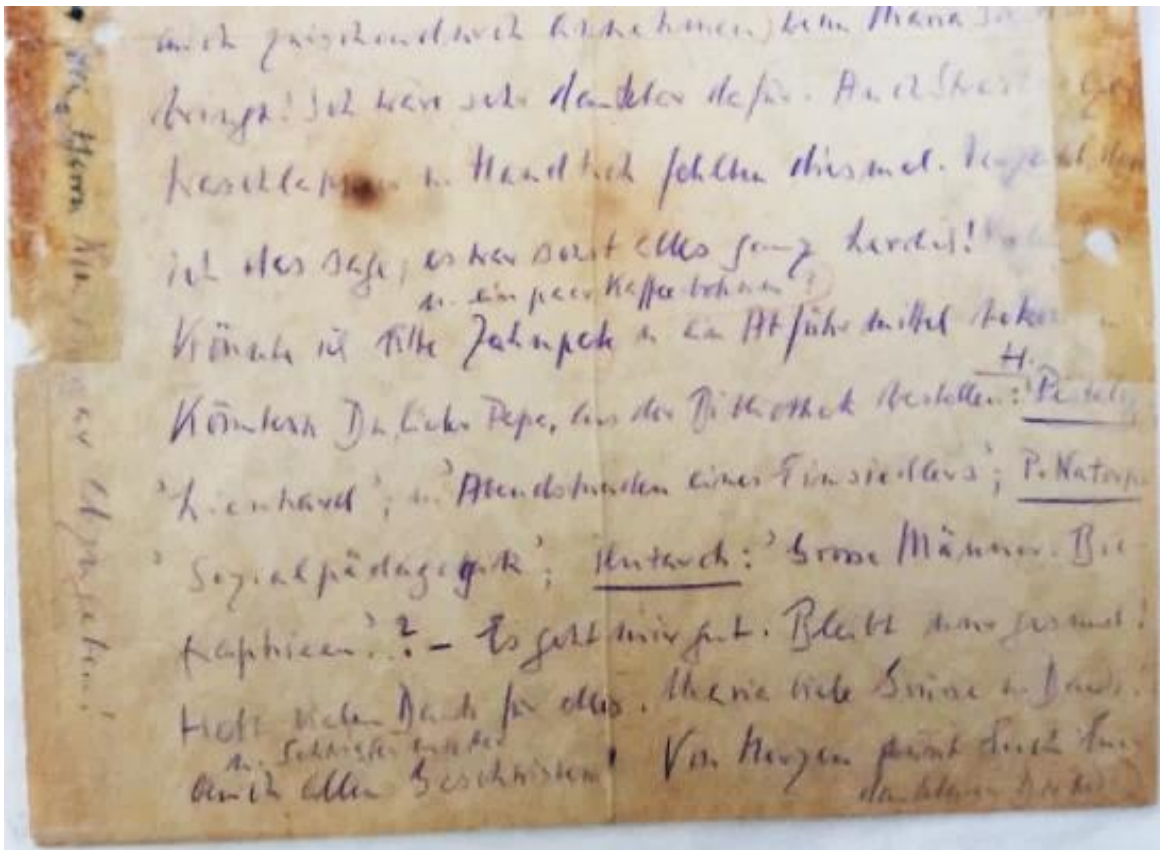 mich zwischendurch annehmen, wenn Maria Sie
bringt! Ich wäre sehr dankbar dafür. Auch
Waschlappen u. Handtuch fehlten diesmal.
ich das sage, es war sonst alles ganz herrlich!
u. ein paar Kaffeebohnen?
Könnte ich bitte Zahnpaste u. ein Abführmittel
H.
Könntest Du, lieber Papa, aus der Bibliothek bestellen: Pestalozzi
'Lienhard'; u. 'Abendstunden eines Einsiedlers'; P. Natorp:
'Sozialpädagogik'; Plutarch: 'Grosse Männer. Bio-
graphieen'? – Es geht mir gut. Bleibt nur gesund!
Habt vielen Dank für alles. Maria viele Grüsse u. Dank.
u. Schwiegermutter
auch allen Geschwistern! Von Herzen grüsst Euch Euer
dankbarer Dietrich
Herrn